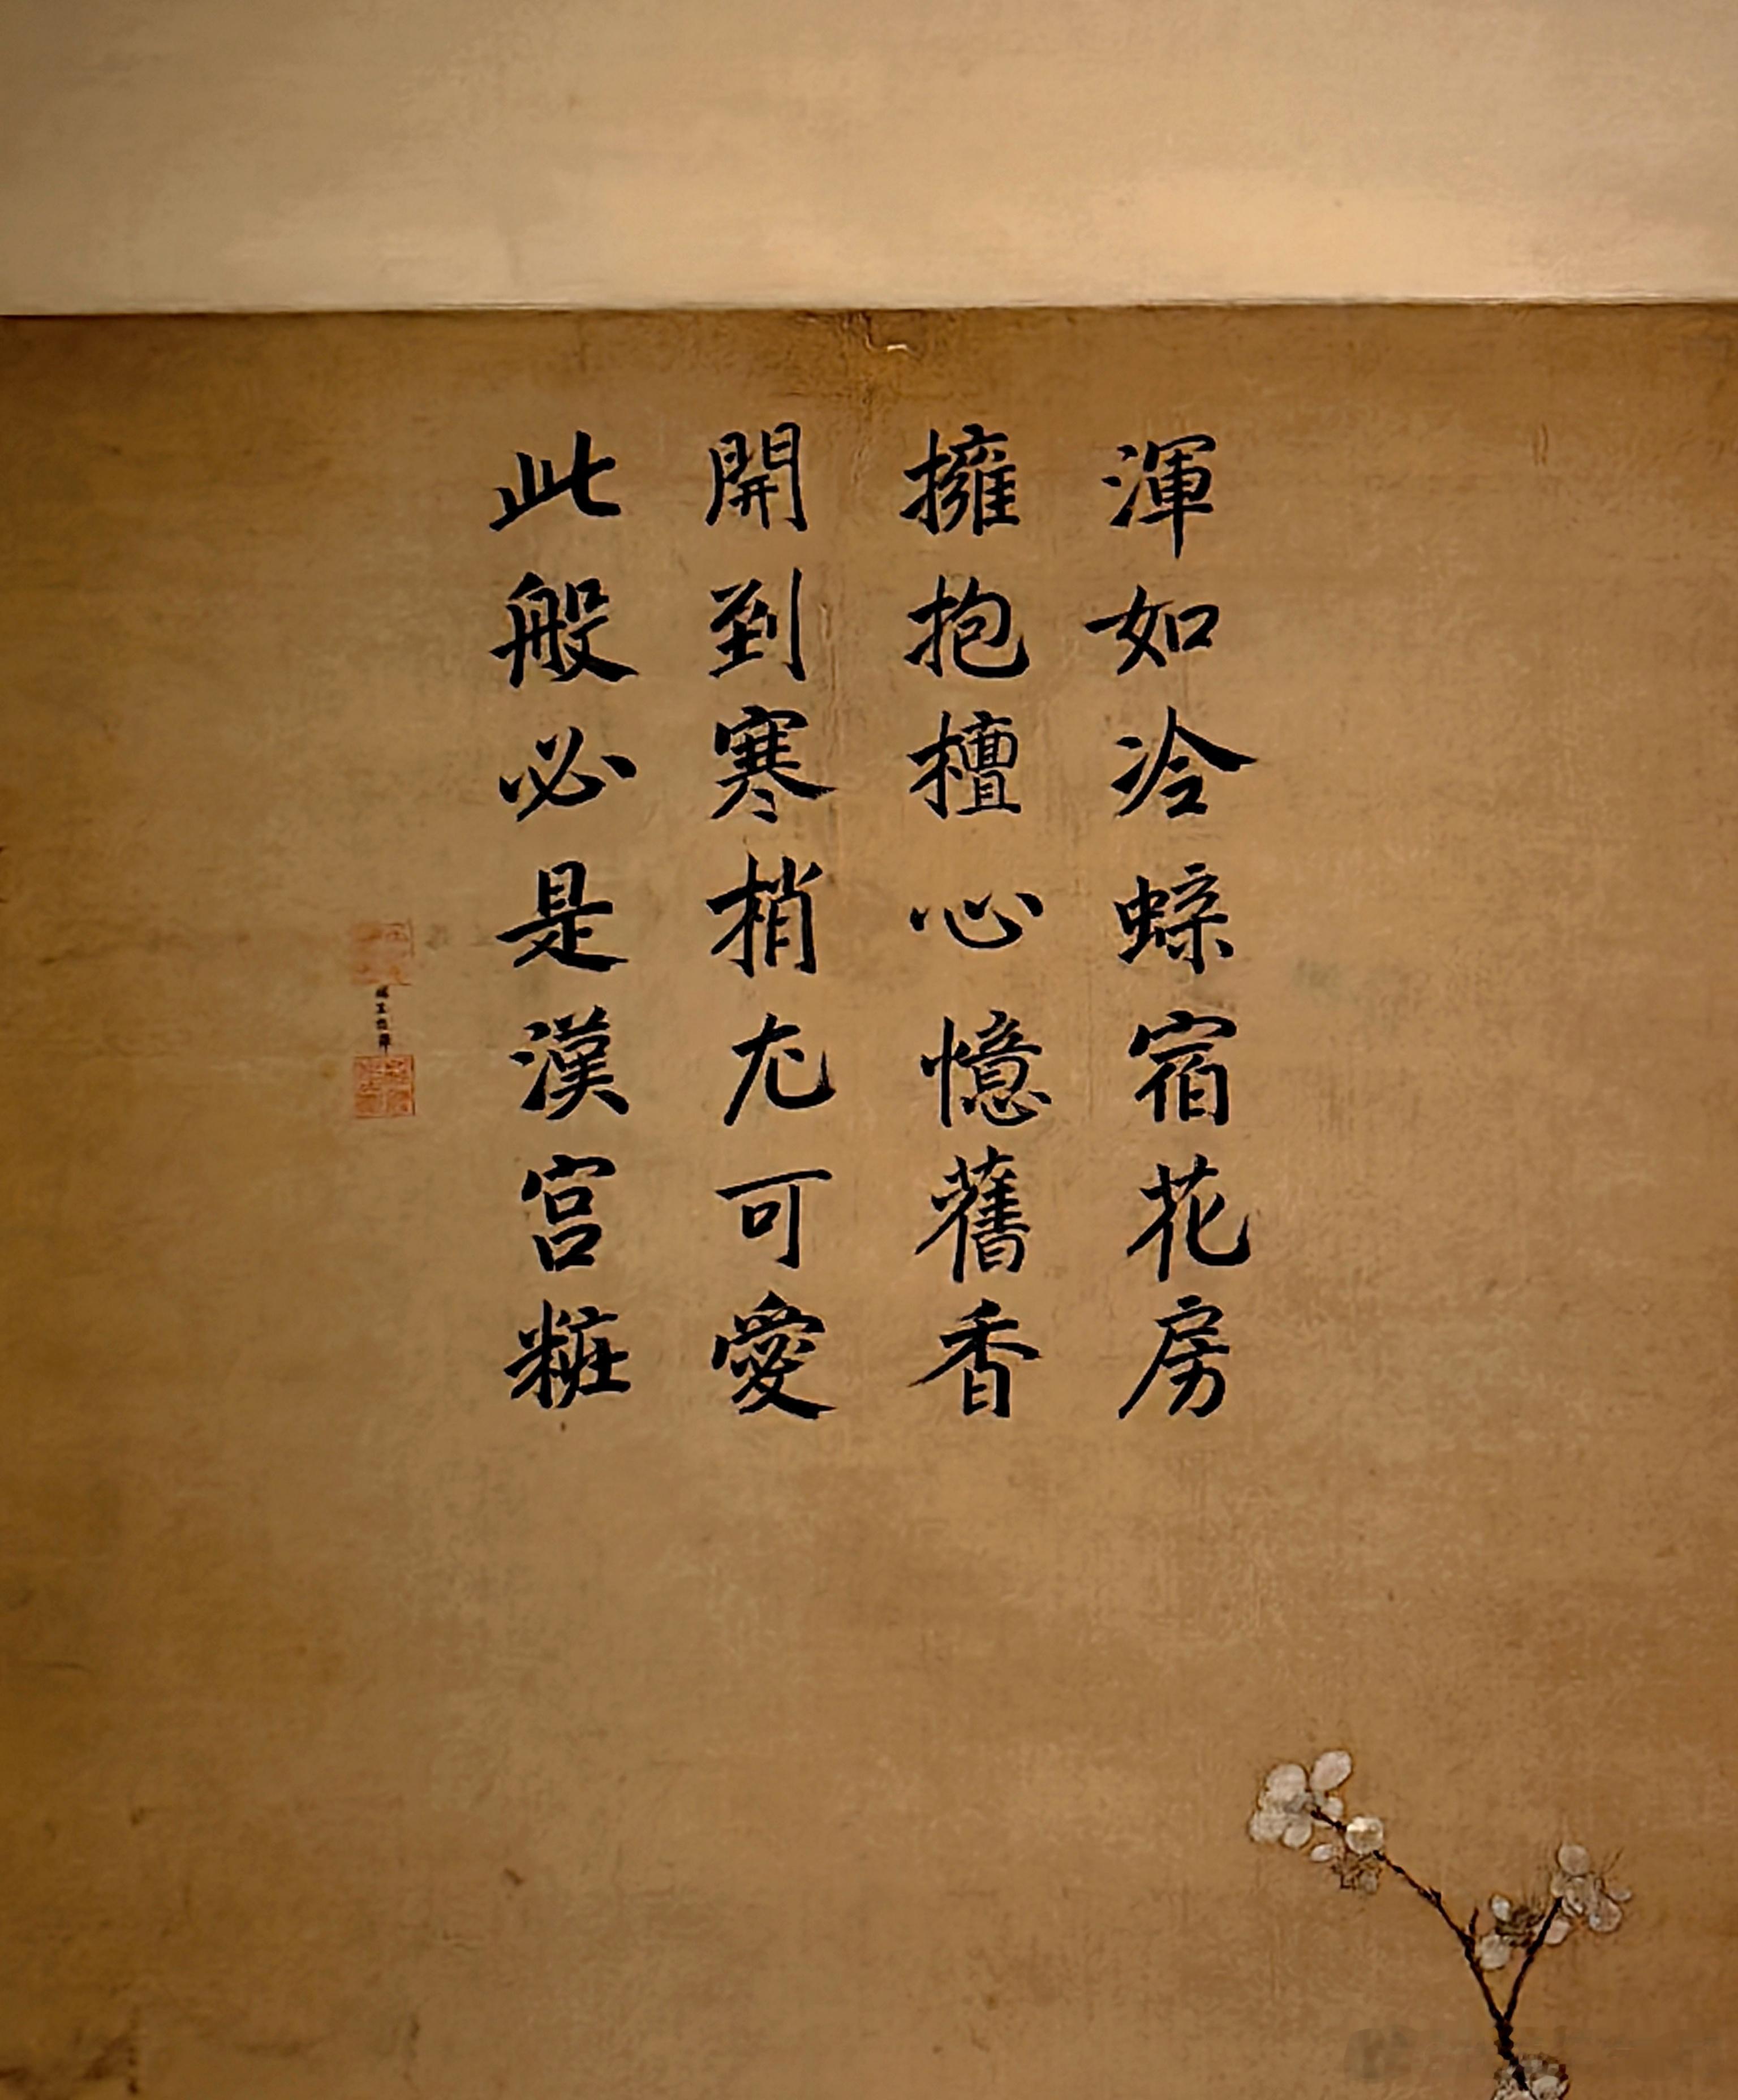 渾如冷蜨宿花房
擁抱檀心憶舊香
開到寒梢尤可愛
此般必是漢宮粧